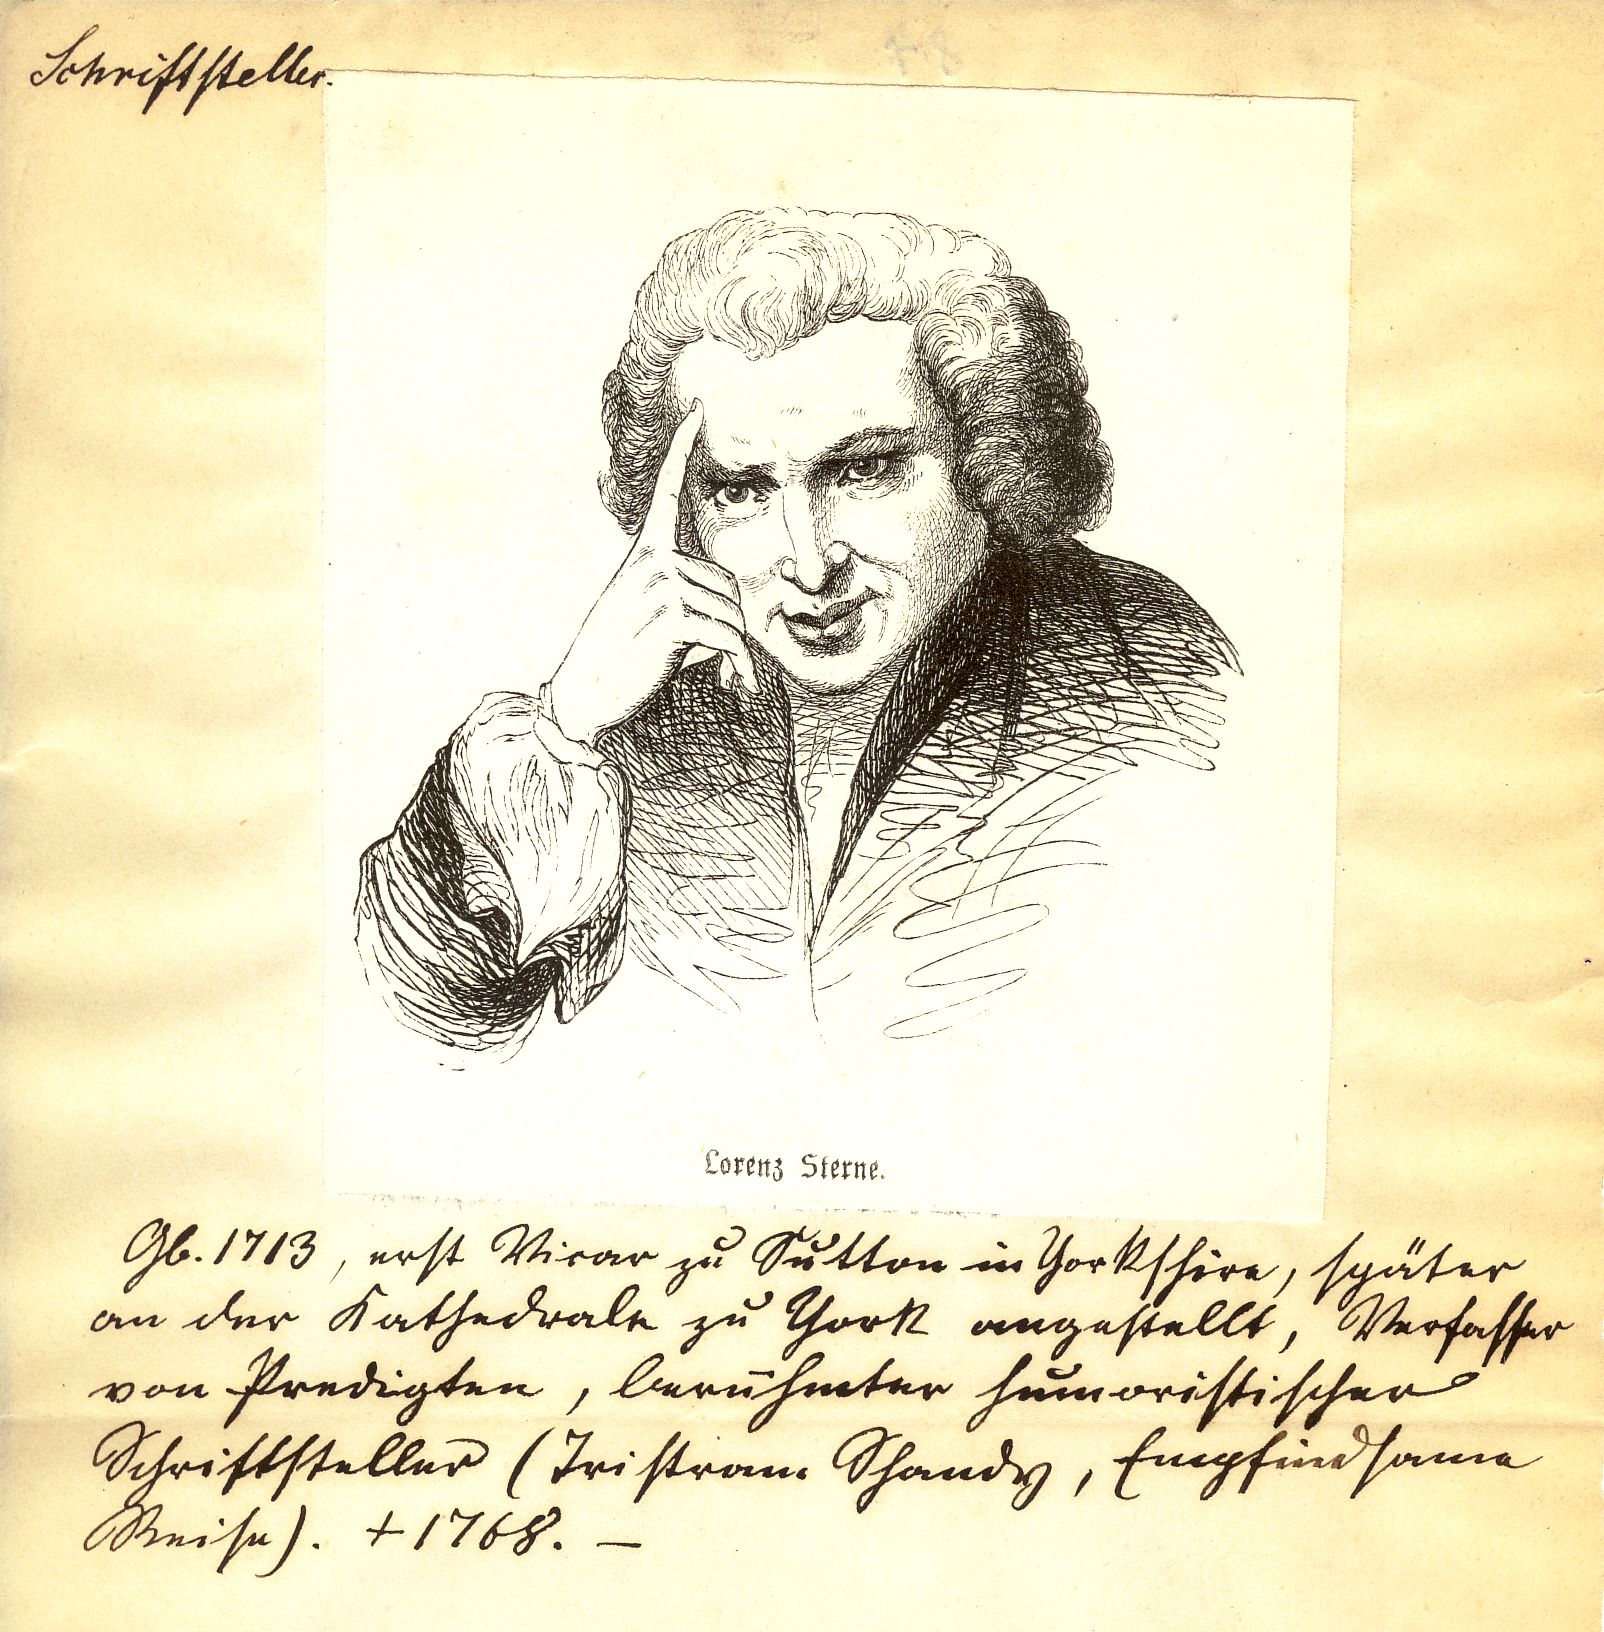 Schriftsteller.
Lorenz Sterne.
Gb. 1713, erst Vicar zu Sutton in Yorkshire, später
an der Kathedrale zu York angestellt, Verfasser
von Predigten, berühmter humoristischer
Schriftsteller (Tristram Shandy, Empfindsame
Reise). + 1768. —